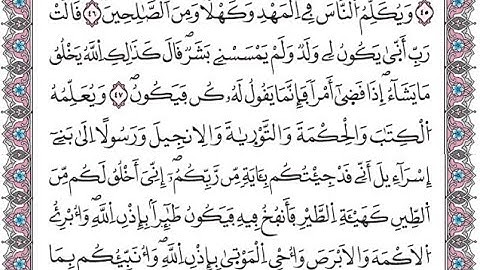 ٤٥ وَيُكَلِّمُ اُ۬لنَّاسَ فِي اِ۬لْمَهْدِ وَكَهْلاٗ وَمِنَ اَ۬لصَّٰلِحِينَۖ ٤٦ قَالَتْ
رَبِّ أَنّ۪يٰ يَكُونُ لِے وَلَدٞ وَلَمْ يَمْسَسْنِے بَشَرٞۖ قَالَ كَذَٰلِكِ اِ۬للَّهُ يَخْلُقُ
مَا يَشَآءُۖ اِذَا قَض۪يٰٓ أَمْراٗ فَإِنَّمَا يَقُولُ لَهُۥ كُن فَيَكُونُۖ ٤٧ وَيُعَلِّمُهُ
اُ۬لْكِتَٰبَ وَالْحِكْمَةَ وَالتَّوْر۪يٰةَ وَالِانجِيلَ وَرَسُولاً اِلَىٰ بَنِےٓ
إِسْرَآءِيلَ أَنِّے قَدْ جِئْتُكُم بِـَٔايَةٖ مِّن رَّبِّكُمُۥٓۖ إِنِّيَ أَخْلُقُ لَكُم مِّنَ
اَ۬لطِّينِ كَهَيْـَٔةِ اِ۬لطَّيْرِ فَأَنفُخُ فِيهِ فَيَكُونُ طَٰٓئِراَۢ بِإِذْنِ اِ۬للَّهِۖ وَأُبْرِۓُ
اُ۬لَاكْمَهَ وَالَابْرَصَ وَأُحْيِ اِ۬لْمَوْت۪يٰ بِإِذْنِ اِ۬للَّهِۖ وَأُنَبِّئُكُم بِمَا